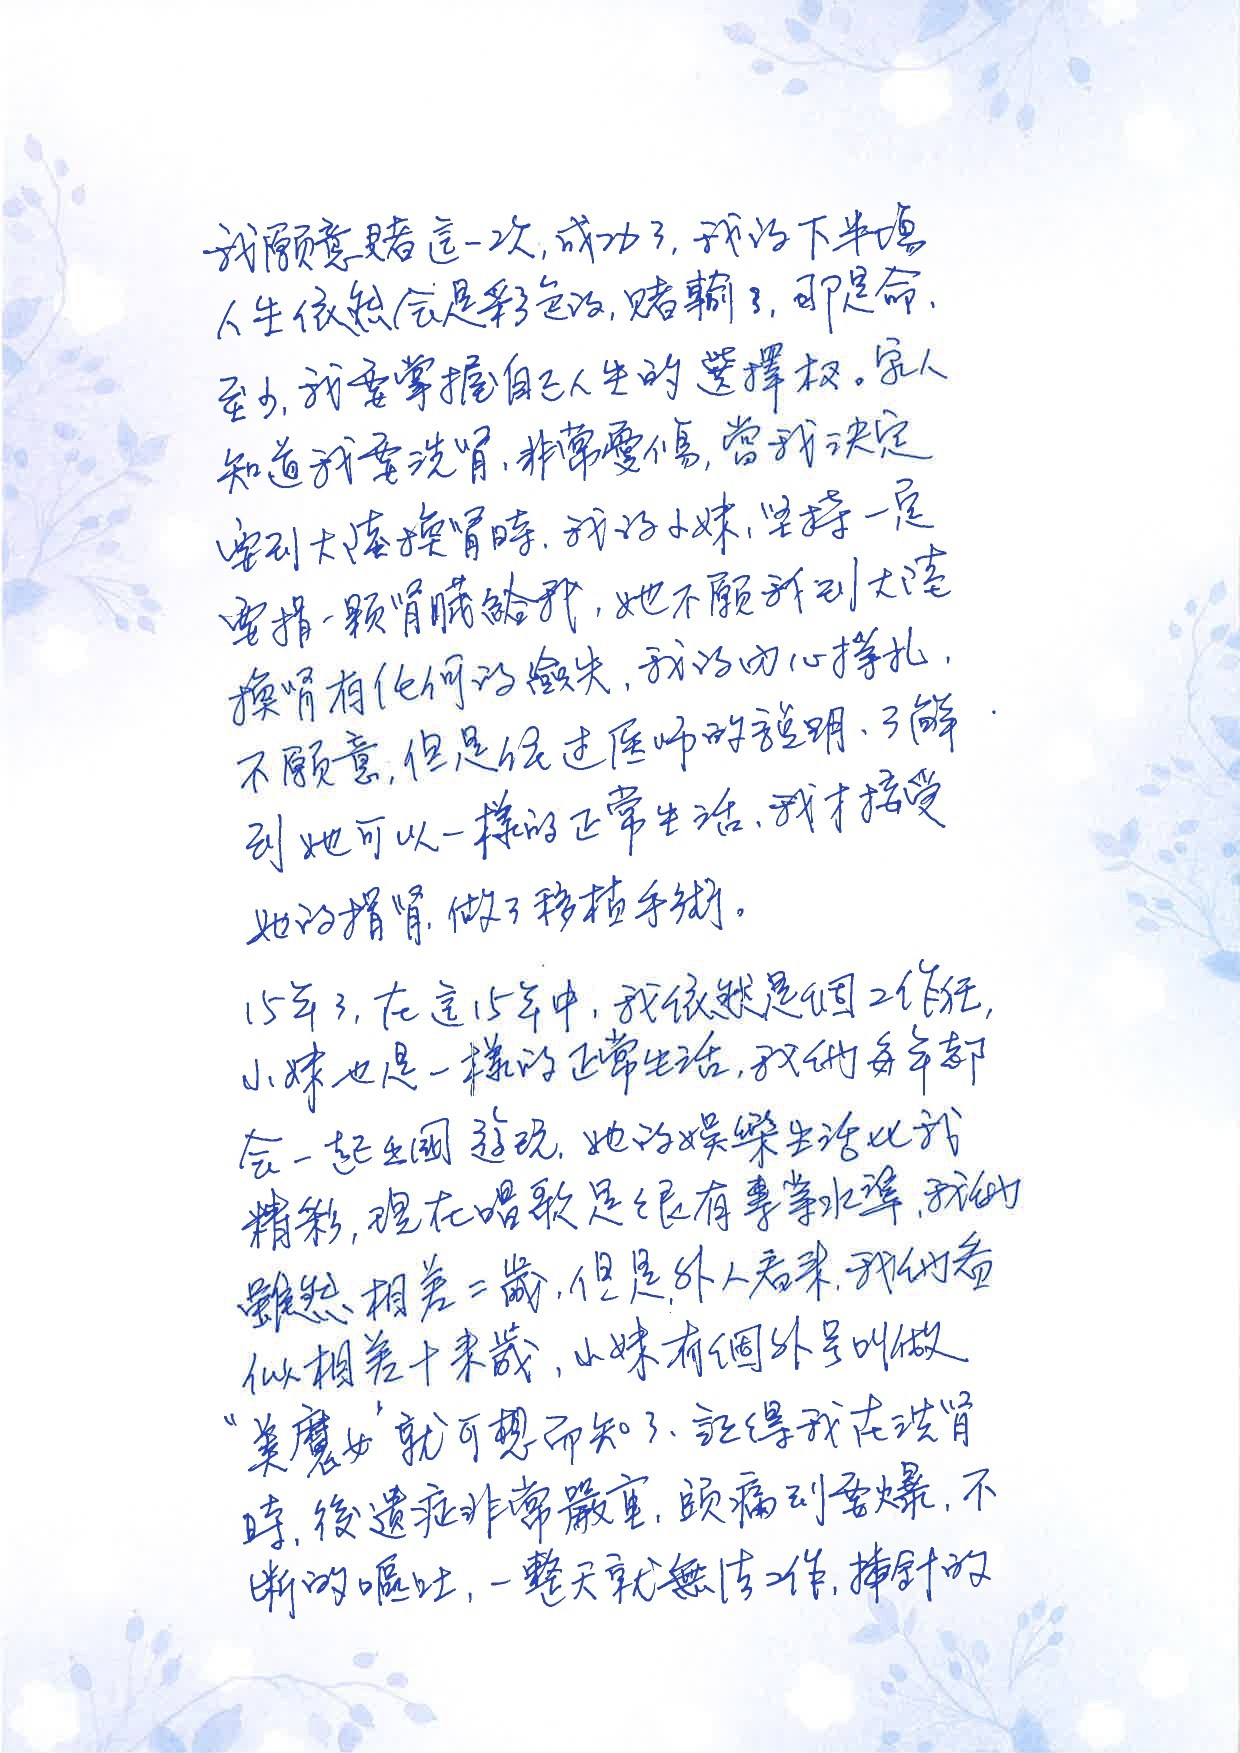 我願意賭這一次，成功了，我的下半場
人生依然会是彩色的，賭輸了，那是命，
至少，我要掌握自己人生的選擇权。家人
知道我要洗腎，非常憂傷，當我決定
要到大陸換腎時，我的小妹，坚持一定
要捐一顆腎臟給我，她不願我到大陸
換腎有任何的閃失，我的內心掙扎，
不願意，但是经过医师的說明、了解
到她可以一樣的正常生活，我才接受
她的捐腎，做了移植手術。
15年了，在這15年中，我依然是個工作狂，
小妹也是一樣的正常生活，我們每年都
会一起出國遊玩，她的娛樂生活比我
精彩，現在唱歌是很有專業水準，我們
雖然相差二歲，但是，外人看來，我們看
似相差十來歲，小妹有個外号叫做
“美魔女”就可想而知了、記得我在洗腎
時，後遺症非常嚴重，頭痛到要爆，不
断的嘔吐，一整天就無法工作，捧針的